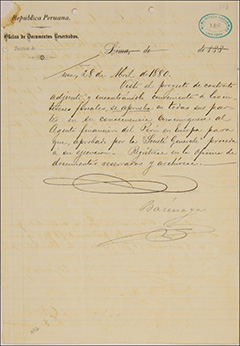 Republica Peruana.
Oficina de Documentos Reservados.
Lima, de de 188
Lima, 28 de Abril de 1880.
Visto el proyecto de contrato
adjunto y encontrándolo conveniente á los in-
tereses fiscales, se aprueba en todas sus par-
tes en su consecuencia, comuníquese al
Agente financiero del Perú en Europa para
que, aprobado por la Société Générale proceda
a su ejecución. Regístrese en la oficina de
documentos reservados y archívese.
Barinaga